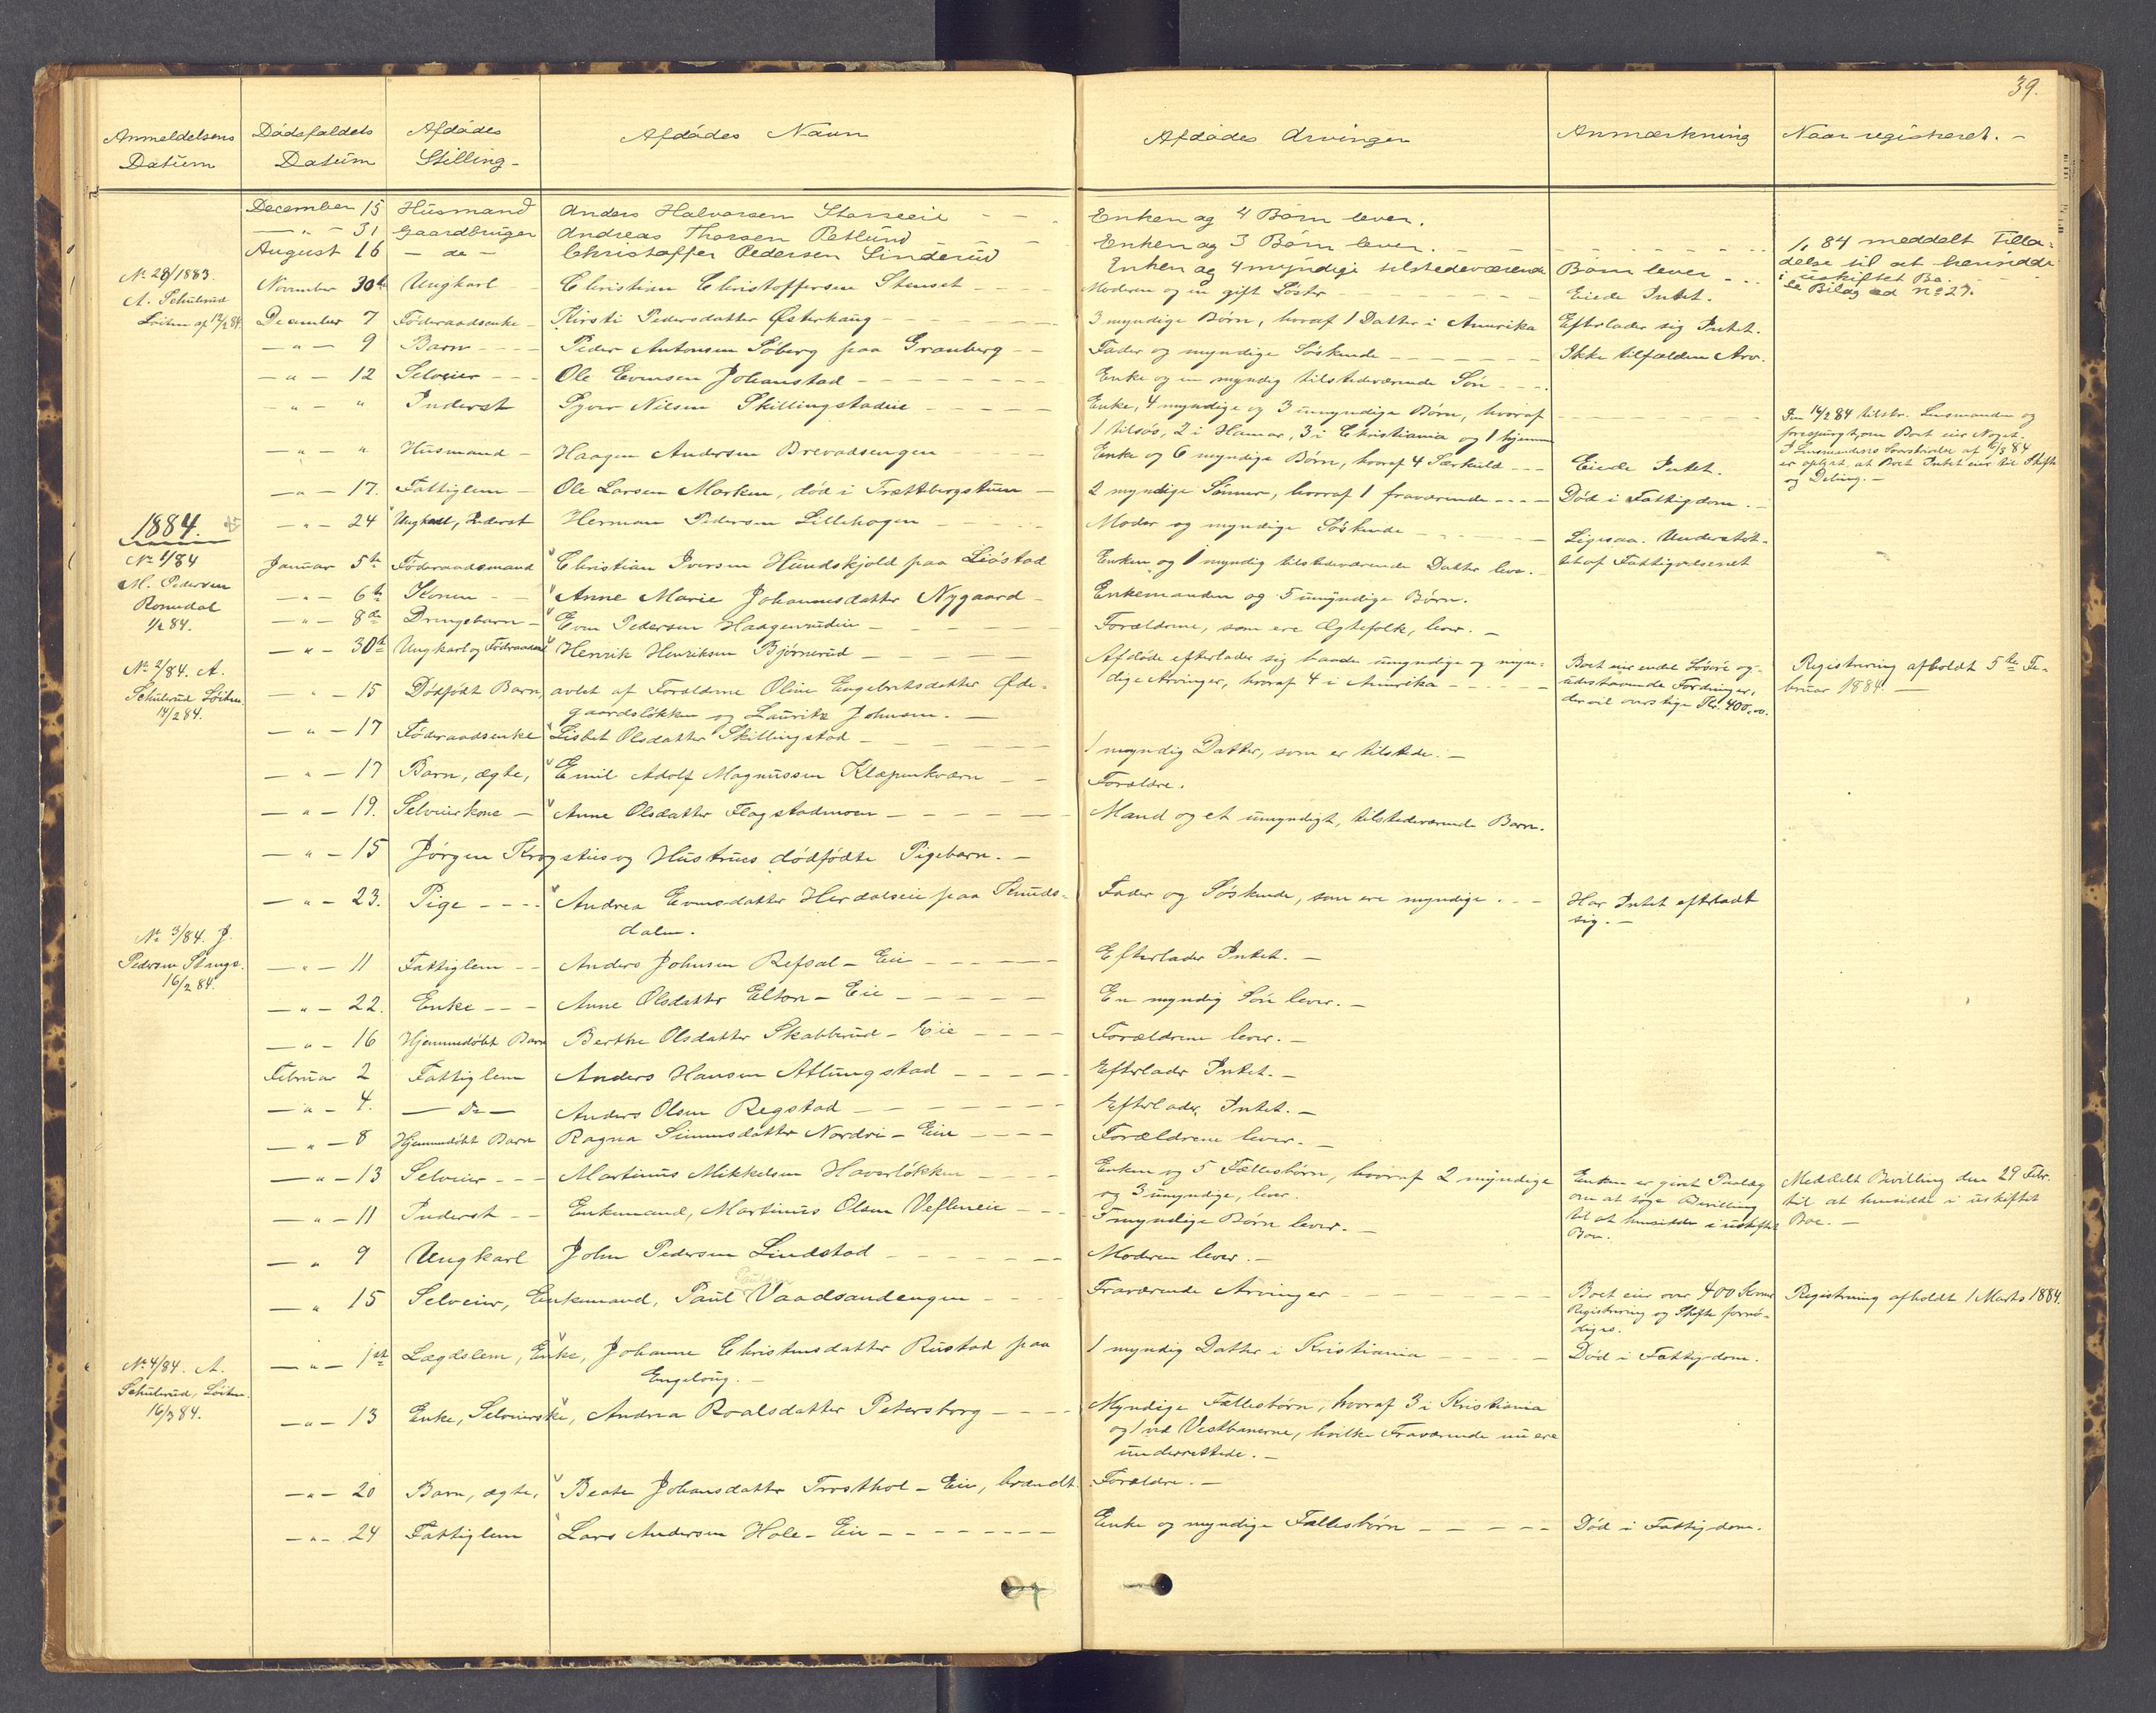 39.
Anmeldelsens Datum | Dødsfaldets Datum | Afdødes Stilling - | Afdødes Navn | Afdødes Arvinger | Anmærkning | Naar registreret. -
December 15 | Husmand | Anders Halvorsen | Enken og 4 Børn lever.
— " — 31 | Gaardbruger | Andreas Thorsen | Enken og 3 Børn lever.
August 16 | — do — | Christoffer Pedersen Linderud | Enken og 4 myndige tilstedeværende | Børn lever | 84 meddelt Tilla-
delse til at hensidde
i uskiftet Bo.
se Bilag ad No 27.
No 28/1883.
A. Schulerud
Løiten af 12/2 84
November 30te | Ungkarl | Christian Christoffersen Stenset | Moderen og en gift Søster | Eiede Intet.
December 7 | Føderaadsenke | Kirsti Pedersdatter Østerhaug | 3 myndige Børn, hvoraf 1 Datter i Amerika | Efterlader sig Intet.
— " — 9 | Barn | Peder Antonsen Søberg paa Granberg | Fader og myndige Søskende | Ikke tilfalden Arv.
— " — 12 | Selveier | Ole Evensen Johanstad | Enke og en myndig tilstedeværende Søn
— " — " | Inderst | Syver Nilsen Skillingstadeie | Enke, 4 myndige og 3 umyndige Børn, hvoraf
1 tilsøs, 2 i Hamar, 3 i Christiania og 1 hjemme | Den 14/2 84 tilskr. Lensmanden og
forespurgt, om Boet eier Noget.
I Lensmandens Svarskrivelse af 6/3 84
er oplyst, at Boet Intet eier til Skifte
og Deling. —
— " — " | Husmand | Haagen Andersen Brevadsengen | Enke og 6 myndige Børn, hvoraf 4 Særkuld | Eiede Intet.
— " — 17. | Fattiglem | Ole Larsen Morken, død i Trættbergstuen | 2 myndige Sønner, hvoraf 1 fraværende | Død i Fattigdom.
1884.
— " — 24 | Ungkarl, Inderst | Herman Pedersen Lillehagen | Moder og myndige Søskende | Ligesaa. Understøt-
tet af Fattigvæsenet
No 1/84
M. Pedersen
Romedal
1/2 84.
Januar 5te | Føderaadsmand | Christian Iversen Hundskjold paa Liøstad | Enken og 1 myndig tilstedeværende Datter lever.
— " — 6te | Konen | Anne Marie Johannesdatter Nygaard | Enkemanden og 5 umyndige Børn.
— " — 8de | Drengebarn | Even Pedersen Haagenrudeie | Forældrene, som ere Ægtefolk, lever. —
— " — 30te | Ungkarl og Føderaadsm | Henrik Henriksen Bjørnerud | Afdøde efterlader sig baade umyndige og myn-
dige Arvinger, hvoraf 4 i Amerika | Boet eier endel Løsøre og
udestaaende Fordringer,
der vil overstige Kr. 400,00. | Registrering afholdt 5te Fe-
bruar 1884. —
No 2/84. A.
Schulerud Løiten
14/2 84.
— " — 15 | Dødfødt Barn, | avlet af Forældrene Oline Engebretsdatter Øde-
gaardsløkken og Lauritz Johnsen. —
— " — 17 | Føderaadsenke | Lisbet Olsdatter Skillingstad | 1 myndig Datter, som er tilstede. —
— " — 17 | Barn, ægte, | Emil Adolf Magnussen Klæpenkværn | Forældre.
— " — 19. | Selveierkone | Anne Olsdatter Flagstadmoen | Mand og et umyndigt, tilstedeværende Barn.
— " — 15 | Jørgen Krogstie og Hustrues dødfødte Pigebarn. —
— " — 23. | Pige | Andrea Evensdatter Herdalseie paa Knuds-
dalen. | Fader og Søskende, som ere myndige. | Har Intet efterladt
sig. —
No 3/84. J.
Pedersen Stange
16/2 84.
— " — 11 | Fattiglem | Anders Johnsen Refsal - Eie | Efterlader Intet. —
— " — 22. | Enke | Anne Olsdatter Elton - Eie | En myndig Søn lever. —
— " — 16 | Hjemmedøbt Barn | Berthe Olsdatter Skabberud - Eie | Forældrene lever. —
Februar 2 | Fattiglem | Anders Hansen Atlungstad | Efterlader Intet. —
— " — 4. | — Do — | Anders Olsen Regstad | Efterlader Intet. —
— " — 8 | Hjemmedøbt Barn | Ragna Simensdatter Nordvi - Eie | Forældrene lever. —
— " — 13 | Selveier | Martinus Mikkelsen Haverløkken | Enken og 5 Fællesbørn, hvoraf 2 myndige
og 3 umyndige, lever. | Enken er givet Paalæg
om at søge Bevilling
til at hensidde i uskiftet
Bo. | Meddelt Bevilling den 29 Febr.
til at hensidde i uskiftet
Boe. —
— " — 11 | Inderst | Enkemand, Martinus Olsen Vefleneie | 5 myndige Børn lever. —
— " 9 | Ungkarl | John Pedersen Lindstad | Moderen lever. —
Paulsen
— " 15 | Selveier, Enkemand, Paul Vaadsandengen | Fraværende Arvinger | Boet eier over 400 Kroner
Registrering og Skifte fornø-
diges. | Registrering afholdt 1 Marts 1884.
No 4/84. A.
Schulerud, Løiten.
16/3 84.
— " — 1ste | Lægdslem, Enke, Johanne Christensdatter Rustad paa
Engelaug. — | 1 myndig Datter i Kristiania | Død i Fattigdom.
— " — 13 | Enke, Selveierske, Andrea Roalsdatter Petersborg | Myndige Fællesbørn, hvoraf 3 i Kristiania
og 1 ved Vestbanerne, hvilke Fraværende nu ere
underrettede. —
— " — 20 | Barn, ægte, | Beate Johansdatter Trosthol - Eie, brændt. | Forældre. —
— " — 24 | Fattiglem | Lars Andersen Hole - Eie | Enke og myndige Fællesbørn | Død i Fattigdom.